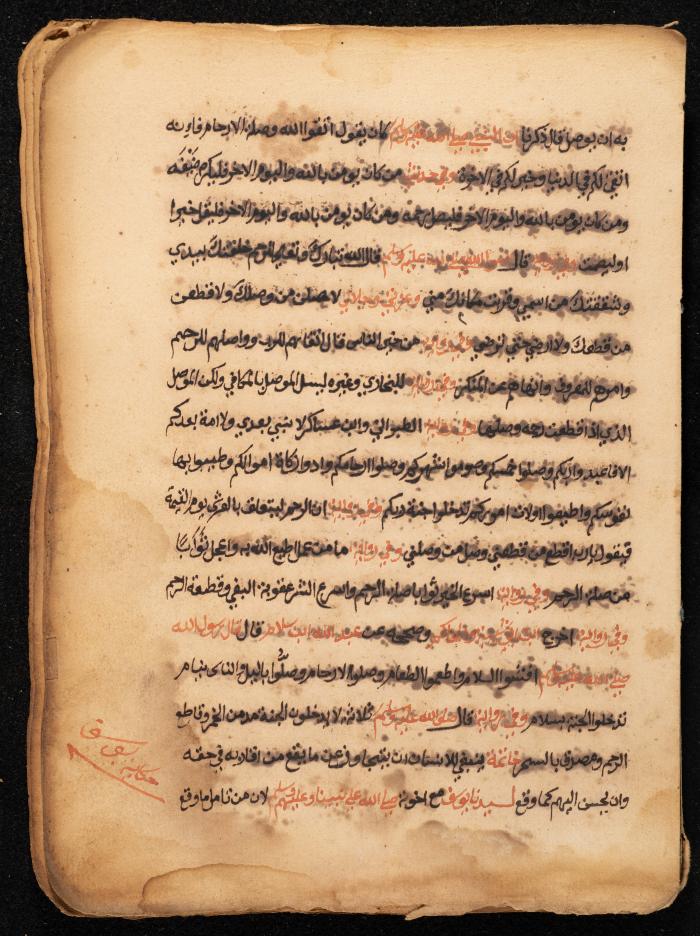 به ان يوصل قال ذكر لنا ان النبي صلى الله عليه وسلم كان يقول اتقوا الله وصلوا الارحام فانه
اتقى لكم في الدنيا وخير لكم في الاخرة وفي حديث من كان يومن بالله واليوم الاخر فليكرم ضيفه
ومن كان يومن بالله واليوم الاخر فليصل رحمه ومن كان يومن بالله واليوم الاخر فليقل خيرا
او ليصمت قال الله عليه وسلم قال الله تبارك وتعالى للرحم خلقتك بيدي
وشققتك من اسمي وقرنت مكانك مني وعزتي وجلالي لاصلن من وصلك ولاقطعن
من قطعك ولا ارضى حتى ترضي من خير الناس قال اتقاهم للرب واوصلهم للرحم
وامرهم بالمعروف وانهاهم عن المنكر وفي رواية للبخاري وغيره ليس الموصل بالمكافي ولكن الموصل
الذي اذا قطعت رحمه وصلها الطبراني وابن عساكر لا نبي بعدي ولا امة بعدكم
الا فاعبدوا ربكم وصلوا خمسكم وصوموا شهركم وصلوا ارحامكم وادوا زكاة اموالكم وطيبوا بها
نفوسكم واطيعوا اولات اموركم تدخلوا جنة ربكم وفي رواية ان الرحم ليتعلق بالعرش يوم القيمة
فيقول يارب اقطع من قطعني وصل من وصلني وفي رواية ما من عمل اطيع الله به واعجل ثوابا
من صلة الرحم وفي رواية اسرع الخير ثوابا صلة الرحم واسرع الشر عقوبة البغي وقطيعة الرحم
وفي رواية اخرج ابن ابي شيبة وصححه عن عبد الله ابن سلام قال قال رسول الله
صلى الله عليه وسلم افشوا السلام واطعموا الطعام وصلوا الارحام وصلوا بالليل والناس نيام
تدخلوا الجنة بسلام وفي رواية قال صلى الله عليه وسلم ثلاثة لا يدخلون الجنة مدمن الخمر وقاطع
الرحم ومصدق بالسحر خاتمة ينبغي للانسان ان عن ما يقع من اقاربه في حقه
وان يحسن اليهم كما وقع لسيدنا يوسف مع اخوته صلى الله على نبينا وعليهم وسلم لان من تامل ما وقع
يوسف
حكاية